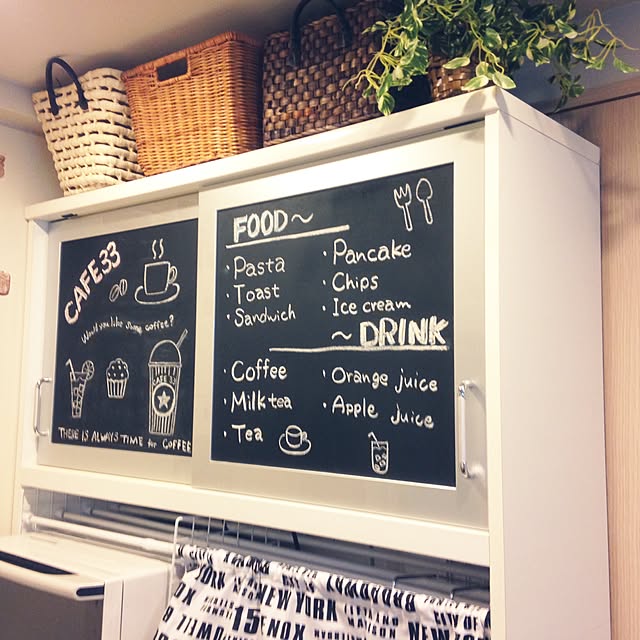 CAFE33
Would you like some coffee?
THERE IS ALWAYS TIME for COFFEE
FOOD~
・Pasta
・Toast
・Sandwich
・Pancake
・Chips
・Ice cream
~DRINK
・Coffee
・Milk tea
・Tea
・Orange juice
・Apple juice
YORK
NEW YORK
15